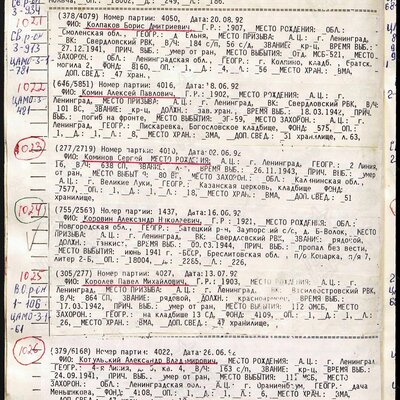 Св р-он
3-934
(378/4079) Номер партии: 4050, Дата:20.08.92
1021
ФИО: Колпаков Борис Дмитриевич, Г.Р.: 1907, МЕСТО РОЖДЕНИЯ: ОБЛ.:
Смоленской обл., ГЕОГР.: д Ельня, МЕСТО ПРИЗЫВА: А.Ц.: г. Ленинград,
ВК: Свердловский РВК, В/Ч: 184 с/п, 56 с/д, ЗВАНИЕ: кр-ц, ВРЕМЯ ВЫБ.:
27.12.1941, ПРИЧ. ВЫБ.: умер от ран, МЕСТО ВЫБЫТИЯ: МСБ-521, МЕСТО
ЗАХОРОН.: ОБЛ.: Ленинградская обл., ГЕОГР.: г. Колпино, кладб.
могила 2, ФОНД: 8160, ОП.: 1, Д.: 1, Л.: 4, МЕСТО ХРАН.: ВМА,
ДОП.СВЕД.: 47 хран.,
Св р-он
3-913
ЦАМО-3-1
-781
1022
(646/5851) Номер партии: 4016,
ФИО: Комин Алексей Павлович, Г.Р.: 1902, МЕСТО РОЖДЕНИЯ: А.Ц.: г.
Ленинград, МЕСТО ПРИЗЫВА: А.Ц.: г. Ленинград, ВК: Свердловский РВК, В/Ч:
101 ВС, ЗВАНИЕ: кр-ц, ДОЛЖН.: зав.хран., ВРЕМЯ ВЫБ.: 18.03.1942, ПРИЧ.
ВЫБ.: погиб на фронте, МЕСТО ВЫБЫТИЯ: ЭГ-59, МЕСТО ЗАХОРОН.: А.Ц.: г.
Ленинград, ГЕОГР.: Пискаревка, Богословское кладбище, ФОНД: 575, ОП.:
1, Д.: 1, Л.: 8, МЕСТО ХРАН.: ВМА, ДОП.СВЕД.: 31 хранилище, л.63,
ЦАМО-3-
481
1023
(277/2719) Номер партии: 4010, Дата:02.06.92
ФИО: Коминов Сергей МЕСТО РОЖДЕНИЯ: А.Ц.: г. Ленинград, ГЕОГР.: 2 Линия,
16, В/Ч: 638 СП, ЗВАНИЕ: ВРЕМЯ ВЫБ.: 26.11.1943, ПРИЧ. ВЫБ.: умер
от ран, МЕСТО ВЫБЫТ Я: 80 ВГ, МЕСТО ЗАХОРОН.: ОБЛ.: Калининская обл.,
А.Ц.: г Великие Луки, ГЕОГР.: Казанская церковь, кладбище ФОНД:
7577, ОП.: 1, Д.: 1, Л.: МЕСТО ХРАН.: ВМА, ДОП.СВЕД.: 51
хранилище,
1024
(755/2563) Номер партии: 1437, Дата:16.06.92
ФИО: Коровин Александр Николаевич, Г.Р.: 1921, МЕСТО РОЖДЕНИЯ: ОБЛ.:
Новгородская обл., ГЕОГР.: Батецкий р-н, Заупорский с/с, д. Б-Волок, МЕСТО
ПРИЗЫВА: А.Ц.: г. Ленинград, ВК: Свердловский РВК, ЗВАНИЕ: рядовой,
ДОЛЖН.: танкист, ВРЕМЯ ВЫБ.: 09.03.1944, ПРИЧ. ВЫБ.: пропал без вести,
МЕСТО ВЫБЫТИЯ: июнь 1941 г. БССР, Бреслитовская обл. п/о Коцарка, п/я 7,
литер 2-Б, ОП.: 18004, Д.: Л.: 226,
1025
(305/277) Номер партии: 4027, Дата:13.07.92
ФИО: Королев Павел Михайлович, Г.Р.: 1903, МЕСТО РОЖДЕНИЯ: А.Ц.: г
Ленинград, МЕСТО ПРИЗЫВА: А.Ц.: г. Ленинград, ВК: Василеостровский РВК,
В/Ч: 864 СП, ЗВАНИЕ: рядовой, ДОЛЖН.: красноармеец, ВРЕМЯ ВЫБ.:
17.03.1942, ПРИЧ. ВЫБ.: умер от ран, МЕСТО ВЫБЫТИЯ: 112 ОМСБ, МЕСТО
ЗАХОРОН.: ГЕОГР.: на кладбище 13 СД, ФОНД: 4109, ОП.: 1, Д.: 1, Л.:
26, МЕСТО ХРАН.: ВМА, ДОП.СВЕД.: 47 хранилище,
В.О. р-он
1-106
ЦАМО-3-1
-61
1026
(379/6168) Номер партии: 4022, Дата:26.06.92
ФИО: Котульский Александр Владимирович, МЕСТО РОЖДЕНИЯ: А.Ц.: г. Ленинград,
ГЕОГР.: 4-я Линия, д. 5, кв. 4, В/Ч: 163 СП, ЗВАНИЕ: кр-ц, ВРЕМЯ ВЫБ.:
24.09.1941, ПРИЧ. ВЫБ.: умер от ран, МЕСТО ВЫБЫТИЯ: МСБ, МЕСТО
ЗАХОРОН.: ОБЛ.: Ленинградская обл., А.Ц.: г Ораниенбаум, ГЕОГР.: дача
Меньшикова, ФОНД: 4108, ОП.: 1, Д.: 1, Л.: 6, МЕСТО ХРАН.: ВМА,